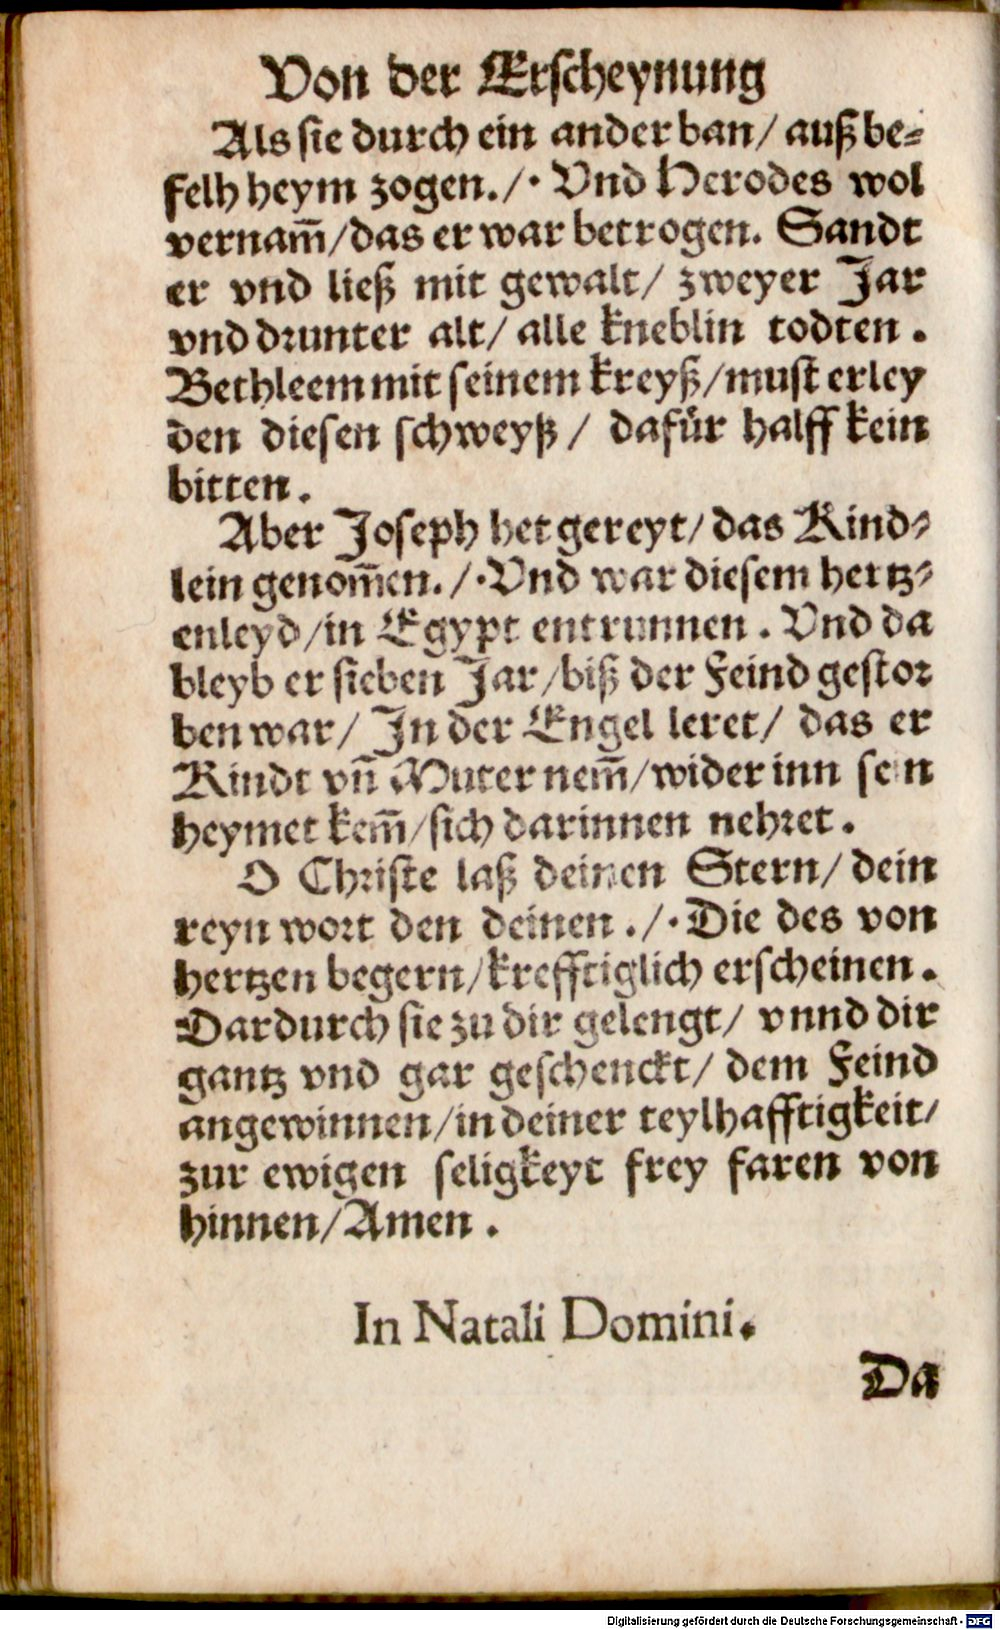 Von der Erscheynung
Als sie durch ein ander ban/ auß be⸗
felh heym zogen./· Vnd Herodes wol
vernam̃/das er war betrogen. Sandt
er vnd ließ mit gewalt/ zweyer Jar
vnd drunter alt/ alle kneblin todten.
Bethleem mit seinem kreyß/must erley
den diesen schweyß/ dafür halff kein
bitten.
Aber Joseph het gereyt/ das Kind⸗
lein genom̃en./·Vnd war diesem hertz⸗
enleyd/in Egypt entrunnen. Vnd da
bleyb er sieben Jar/biß der Feind gestor
ben war/ Jn der Engel leret/ das er
Kindt vñ Muter nem̃/wider inn sein
heymet kem̃/sich darinnen nehret.
O Christe laß deinen Stern/ dein
reyn wort den deinen./·Die des von
hertzen begern/krefftiglich erscheinen.
Dardurch sie zu dir gelengt/ vnnd dir
gantz vnd gar geschenckt/ dem Feind
angewinnen/in deiner teylhafftigkeit/
zur ewigen seligkeyt frey faren von
hinnen/Amen.
In Natali Domini.
Da
Digitalisierung gefördert durch die Deutsche Forschungsgemeinschaft - DFG